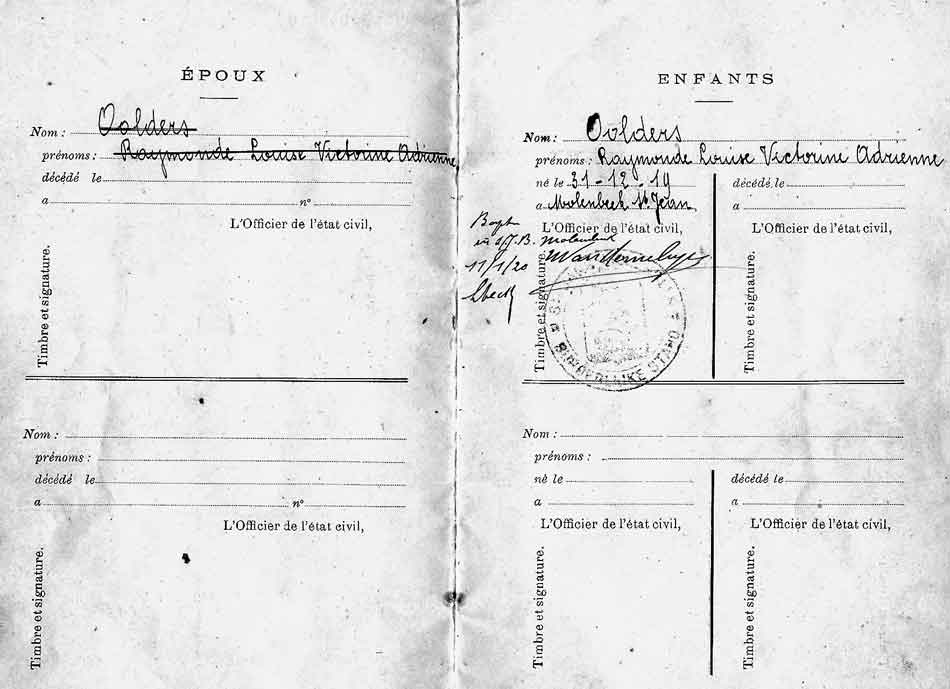 ÉPOUX
Nom : Oolders
prénoms : Raymonde Louise Victorine Adrienne
décédé le
a nº
L'Officier de l'état civil,
Timbre et signature.
Nom :
prénoms :
décédé le
a nº
L'Officier de l'état civil,
Timbre et signature.
ENFANTS
Nom : Oolders
prénoms : Raymonde Louise Victorine Adrienne
né le 31-12-19
décédé le
a Molenbeek St Jean
a
L'Officier de l'état civil,
L'Officier de l'état civil,
Bapt
11/1/20
Timbre et signature.
BURGERLIJKE STAND
Timbre et signature.
Nom :
prénoms :
né le
décédé le
a
a
L'Officier de l'état civil,
L'Officier de l'état civil,
Timbre et signature.
Timbre et signature.